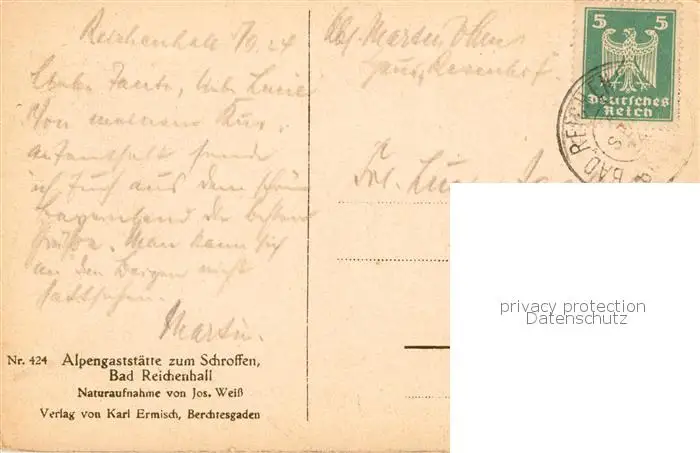 Reichenhall 24
Liebe Tante, liebe Lucie
Von meinem Kur-
aufenthalt sende
ich Euch aus dem schönen
Bayernland die besten
Grüße. Man kann sich
an den Bergen nicht
sattsehen.
Martin.
Nr. 424 Alpengaststätte zum Schroffen,
Bad Reichenhall
Naturaufnahme von Jos. Weiß
Verlag von Karl Ermisch, Berchtesgaden
Abs. Martin
Haus
Frl.
5 5
Deutsches
Reich
BAD REICHEN
privacy protection
Datenschutz